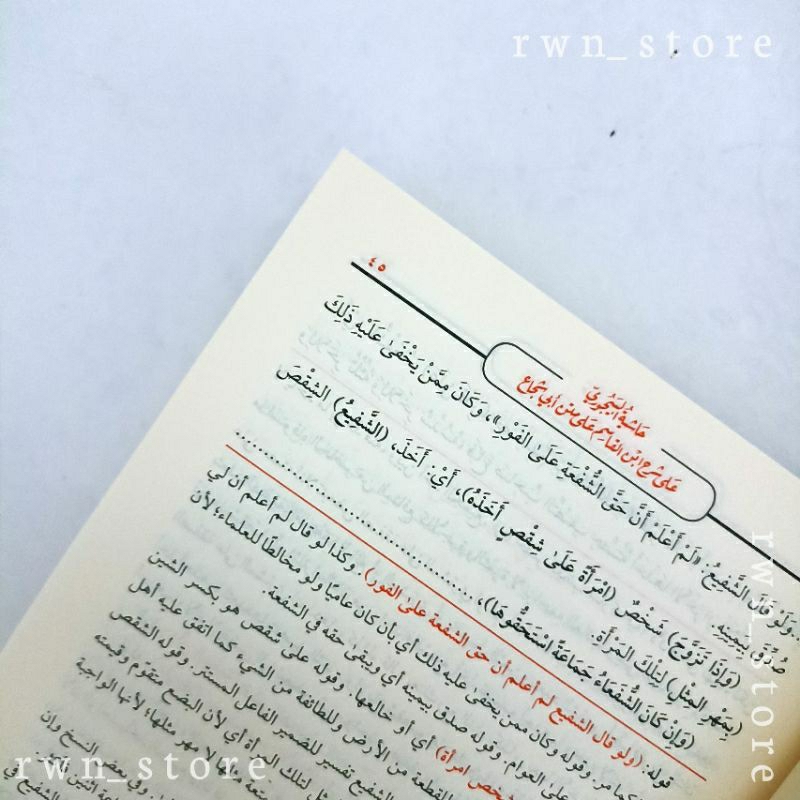 rwn_store
٤٥
حَاشِيَةُ البَيْجُورِيّ
عَلَى شَرْحِ ابْنِ القَاسِمِ عَلَى مَتْنِ أَبِي شُجَاعٍ
وَلَوْ قَالَ الشَّفِيعُ: «لَمْ أَعْلَمْ أَنَّ حَقَّ الشُّفْعَةِ عَلَى الفَوْرِ»، وَكَانَ مِمَّنْ يَخْفَىٰ عَلَيْهِ ذَلِكَ
صُدِّقَ بِيَمِينِهِ.
(وَإِذَا تَزَوَّجَ) شَخْصٌ (امْرَأَةً عَلَىٰ شِقْصٍ أَخَذَهُ)، أَيْ: أَخَذَ، (الشَّفِيعُ) الشِّقْصَ
(بِمَهْرِ المِثْلِ) لِتِلْكَ المَرْأَةِ.
(وَإِنْ كَانَ الشُّفَعَاءُ جَمَاعَةً اسْتَحَقُّوهَا)،
قوله: (ولو قال الشفيع لم أعلم أن حق الشفعة على الفور). وكذا لو قال لم أعلم أن لي
كما مر. وقوله وكان ممن يخفى عليه ذلك أي بأن كان عاميًا ولو مخالطًا للعلماء؛ لأن
على العوام. وقوله صدق بيمينه أي ويبقى حقه في الشفعة.
شخص امرأة) أي أو خالعها. وقوله على شقص هو بكسر الشين
القطعة من الأرض وللطائفة من الشيء كما اتفق عليه أهل
الشفيع تفسير للضمير الفاعل المستتر. وقوله الشقص
لتلك المرأة أي لأن البضع متقوم وقيمته
مهر مثلها؛ لأنها الواجبة
وفي بعض النسخ وإن
rwn_store
rwn_store